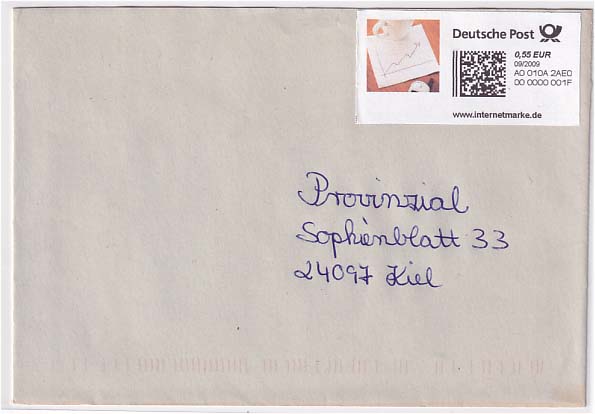 Deutsche Post
0,55 EUR
09/2009
A0 010A 2AE0
00 0000 001F
www.internetmarke.de
Provinzial
Sophienblatt 33
24097 Kiel